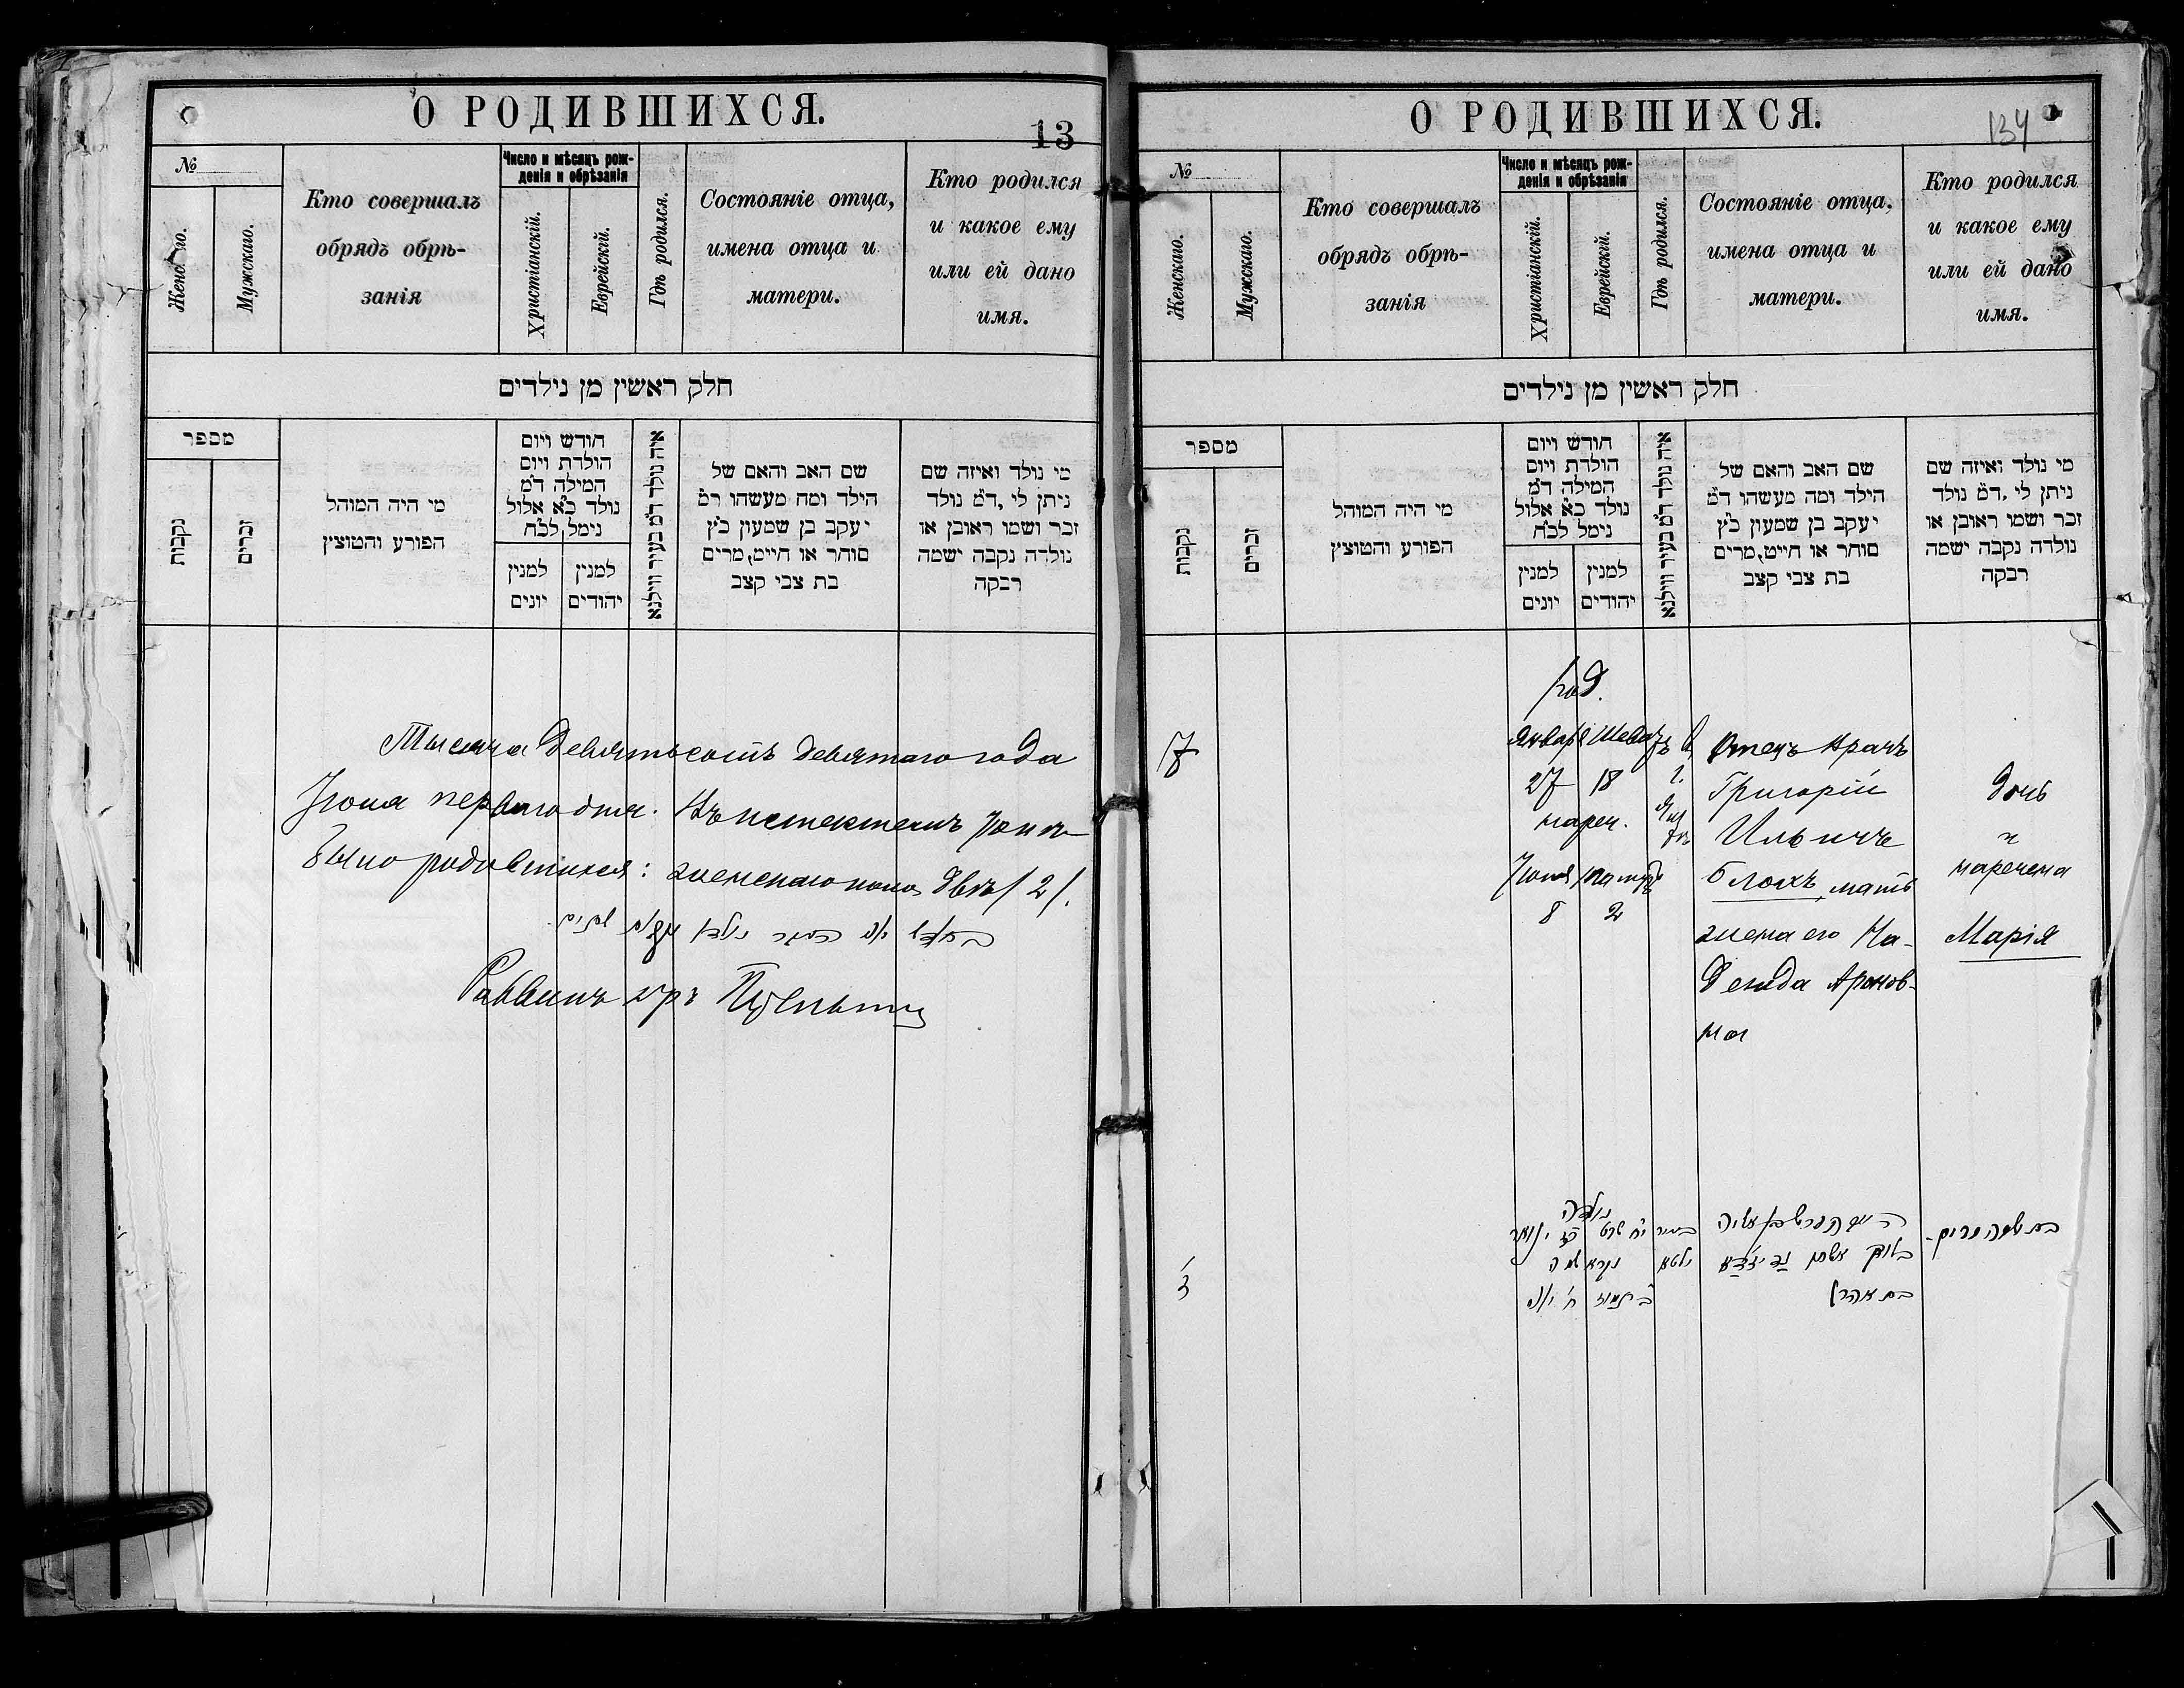 О РОДИВШИХСЯ.
13
№
Женскаго.
Мужскаго.
Кто совершалъ
обрядъ обрѣ-
занія
Число и мѣсяцъ рож-
денія и обрѣзанія
Христіанскій.
Еврейскій.
Гдѣ родился.
Состояніе отца,
имена отца и
матери.
Кто родился
и какое ему
или ей дано
имя.
חלק ראשין מן נילדים
מספר
נקבות
זכרים
מי היה המוהל
הפורע והמוצץ
חודש ויום
הולדת ויום
המילה ד״מ
נולד כ״א אלול
נימל לכ״ח
למנין
יונים
למנין
יהודים
איה נולד ד״מ בעיר ווילנא
שם האב והאם של
הילד ומה מעשהו ד״מ
יעקב בן שמעון כ״ץ
סוחר או חייט, מרים
בת צבי קצב
מי נולד ואיזה שם
ניתן לי, ד״מ נולד
זכר ושמו ראובן או
נולדה נקבה ישמה
רבקה
Тысяча девятьсотъ девятаго года
Іюня перваго дня. Въ истекшемъ
было родившихся: женскаго пола двѣ /2/.
Раввинъ
О РОДИВШИХСЯ.
134
№
Женскаго.
Мужскаго.
Кто совершалъ
обрядъ обрѣ-
занія
Число и мѣсяцъ рож-
денія и обрѣзанія
Христіанскій.
Еврейскій.
Гдѣ родился.
Состояніе отца,
имена отца и
матери.
Кто родился
и какое ему
или ей дано
имя.
חלק ראשין מן נילדים
מספר
נקבות
זכרים
מי היה המוהל
הפורע והמוצץ
חודש ויום
הולדת ויום
המילה ד״מ
נולד כ״א אלול
נימל לכ״ח
למנין
יונים
למנין
יהודים
איה נולד ד״מ בעיר ווילנא
שם האב והאם של
הילד ומה מעשהו ד״מ
יעקב בן שמעון כ״ץ
סוחר או חייט, מרים
בת צבי קצב
מי נולד ואיזה שם
ניתן לי, ד״מ נולד
זכר ושמו ראובן או
נולדה נקבה ישמה
רבקה
род.
7
Января
27
нареч.
Іюня
8
Шеватъ
18
2
Въ
г.
Ял
тѣ
Отецъ врачъ
Григорій
Ильичъ
Блохъ, мать
жена его На-
дежда Аронов-
на
дочь
и
наречена
Марія
נולדה
י״ח שבט
נקרא שמה
יאלטא
בת אהרן
בת שמה מרים